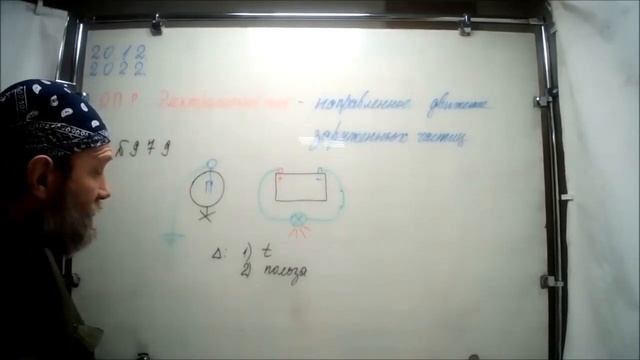 20.12.
2022
ОПР Электрический ток - направленное движение
заряженных частиц
№979
П
+ -
Δ: 1) t
2) польза